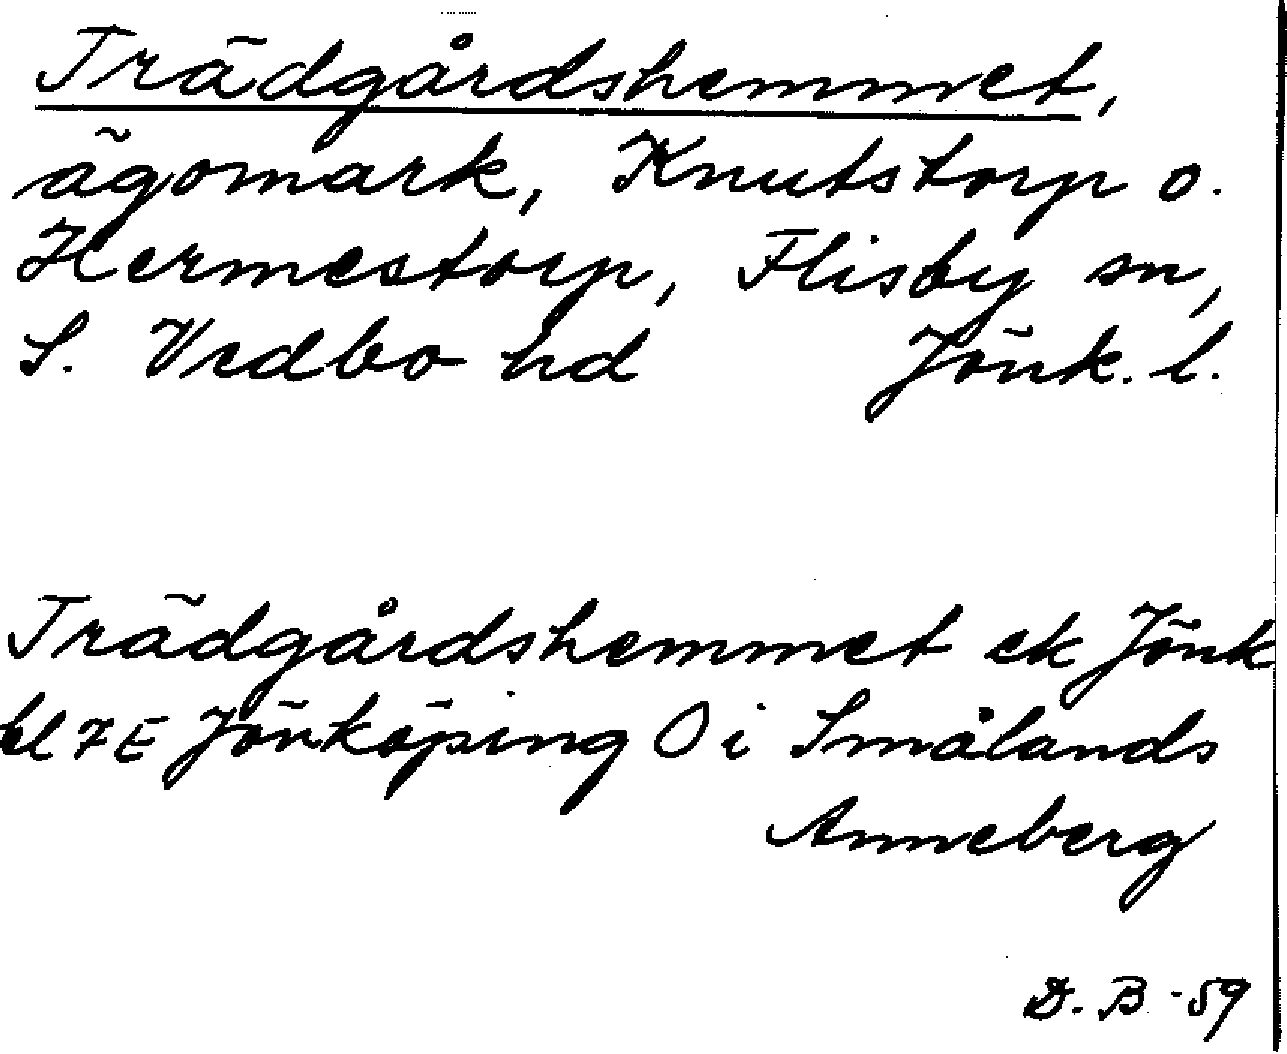 Trädgårdshemmet,
ägomark, Knutstorp o.
Hermestorp, Flisby sn,
S. Vedbo hd Jönk. l.
Trädgårdshemmet ek Jönk
bl 7E Jönköping O i Smålands
Anneberg
D. B -59